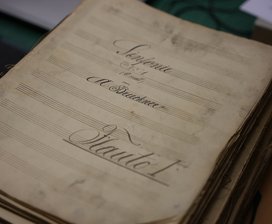 Sinfonie
A Bruckner
Flauto I